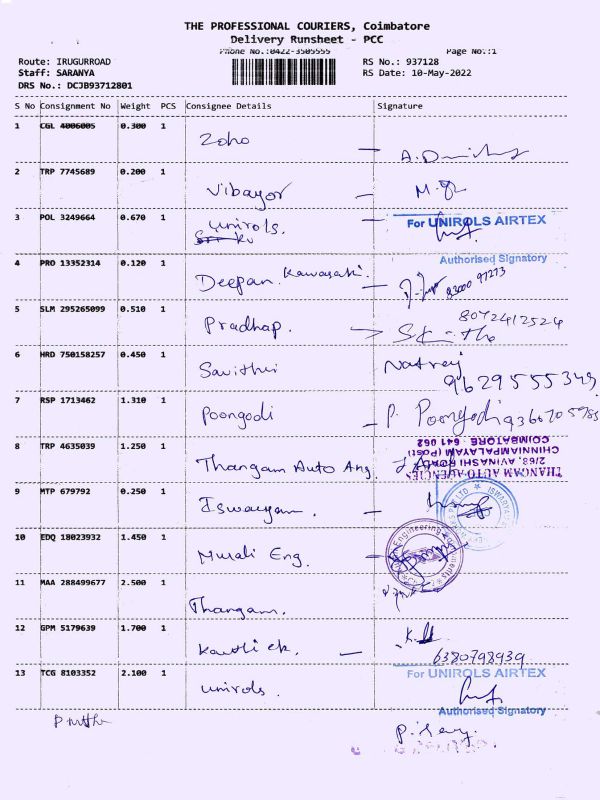 THE PROFESSIONAL COURIERS, Coimbatore
Delivery Runsheet - PCC
Phone No.:0422-3505555 Page No.:1
Route: IRUGURROAD RS No.: 937128
Staff: SARANYA RS Date: 10-May-2022
DRS No.: DCJB93712801
S No Consignment No Weight PCS Consignee Details Signature
1 CGL 4006005 0.300 1 Zoho
2 TRP 7745689 0.200 1 Vibayor
3 POL 3249664 0.670 1 Unirols. For UNIROLS AIRTEX
Authorised Signatory
4 PRO 13352314 0.120 1 Deepan Kawasaki. 83000 97273
5 SLM 295265099 0.510 1 Pradhap. 8072412524
6 HRD 750158257 0.450 1 Savithri Natraj
9629555349
7 RSP 1713462 1.310 1 Poongodi P. Poongodi
8 TRP 4635039 1.250 1 Thangam Auto Ang.
THANGAM AUTO AGENCIES
2/68, AVINASHI ROAD,
CHINNIAMPALAYAM (Post)
COIMBATORE - 641 062
9 MTP 679792 0.250 1 Iswaryam.
10 EDQ 18023932 1.450 1 Murali Eng. Engineering
11 MAA 288499677 2.500 1 Thangam.
12 GPM 5179639 1.700 1 Kauslick. K.
6380798939
13 TCG 8103352 2.100 1 Unirols. For UNIROLS AIRTEX
Authorised Signatory